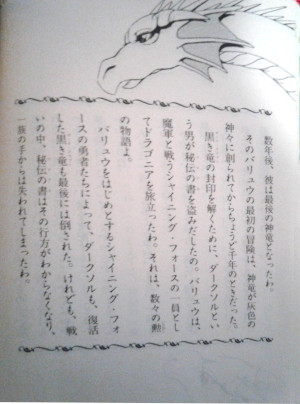 数年後、彼は最後の神竜となったわ。
そのバリュウの最初の冒険は、神竜が灰色の
神々に創られてからちょうど千年のときだった。
黒き竜の封印を解くために、ダークソルとい
う男が秘伝の書を盗みだしたの。バリュウは、
魔軍と戦うシャイニング・フォースの一員とし
てドラゴニアを旅立ったわ。それは、数々の勲
の物語よ。
バリュウをはじめとするシャイニング・フォ
ースの勇者たちによって、ダークソルも、復活
した黒き竜も最後には倒された。けれども、戦
いの中、秘伝の書はその行方がわからなくなり、
一族の手からは失われてしまったわ。